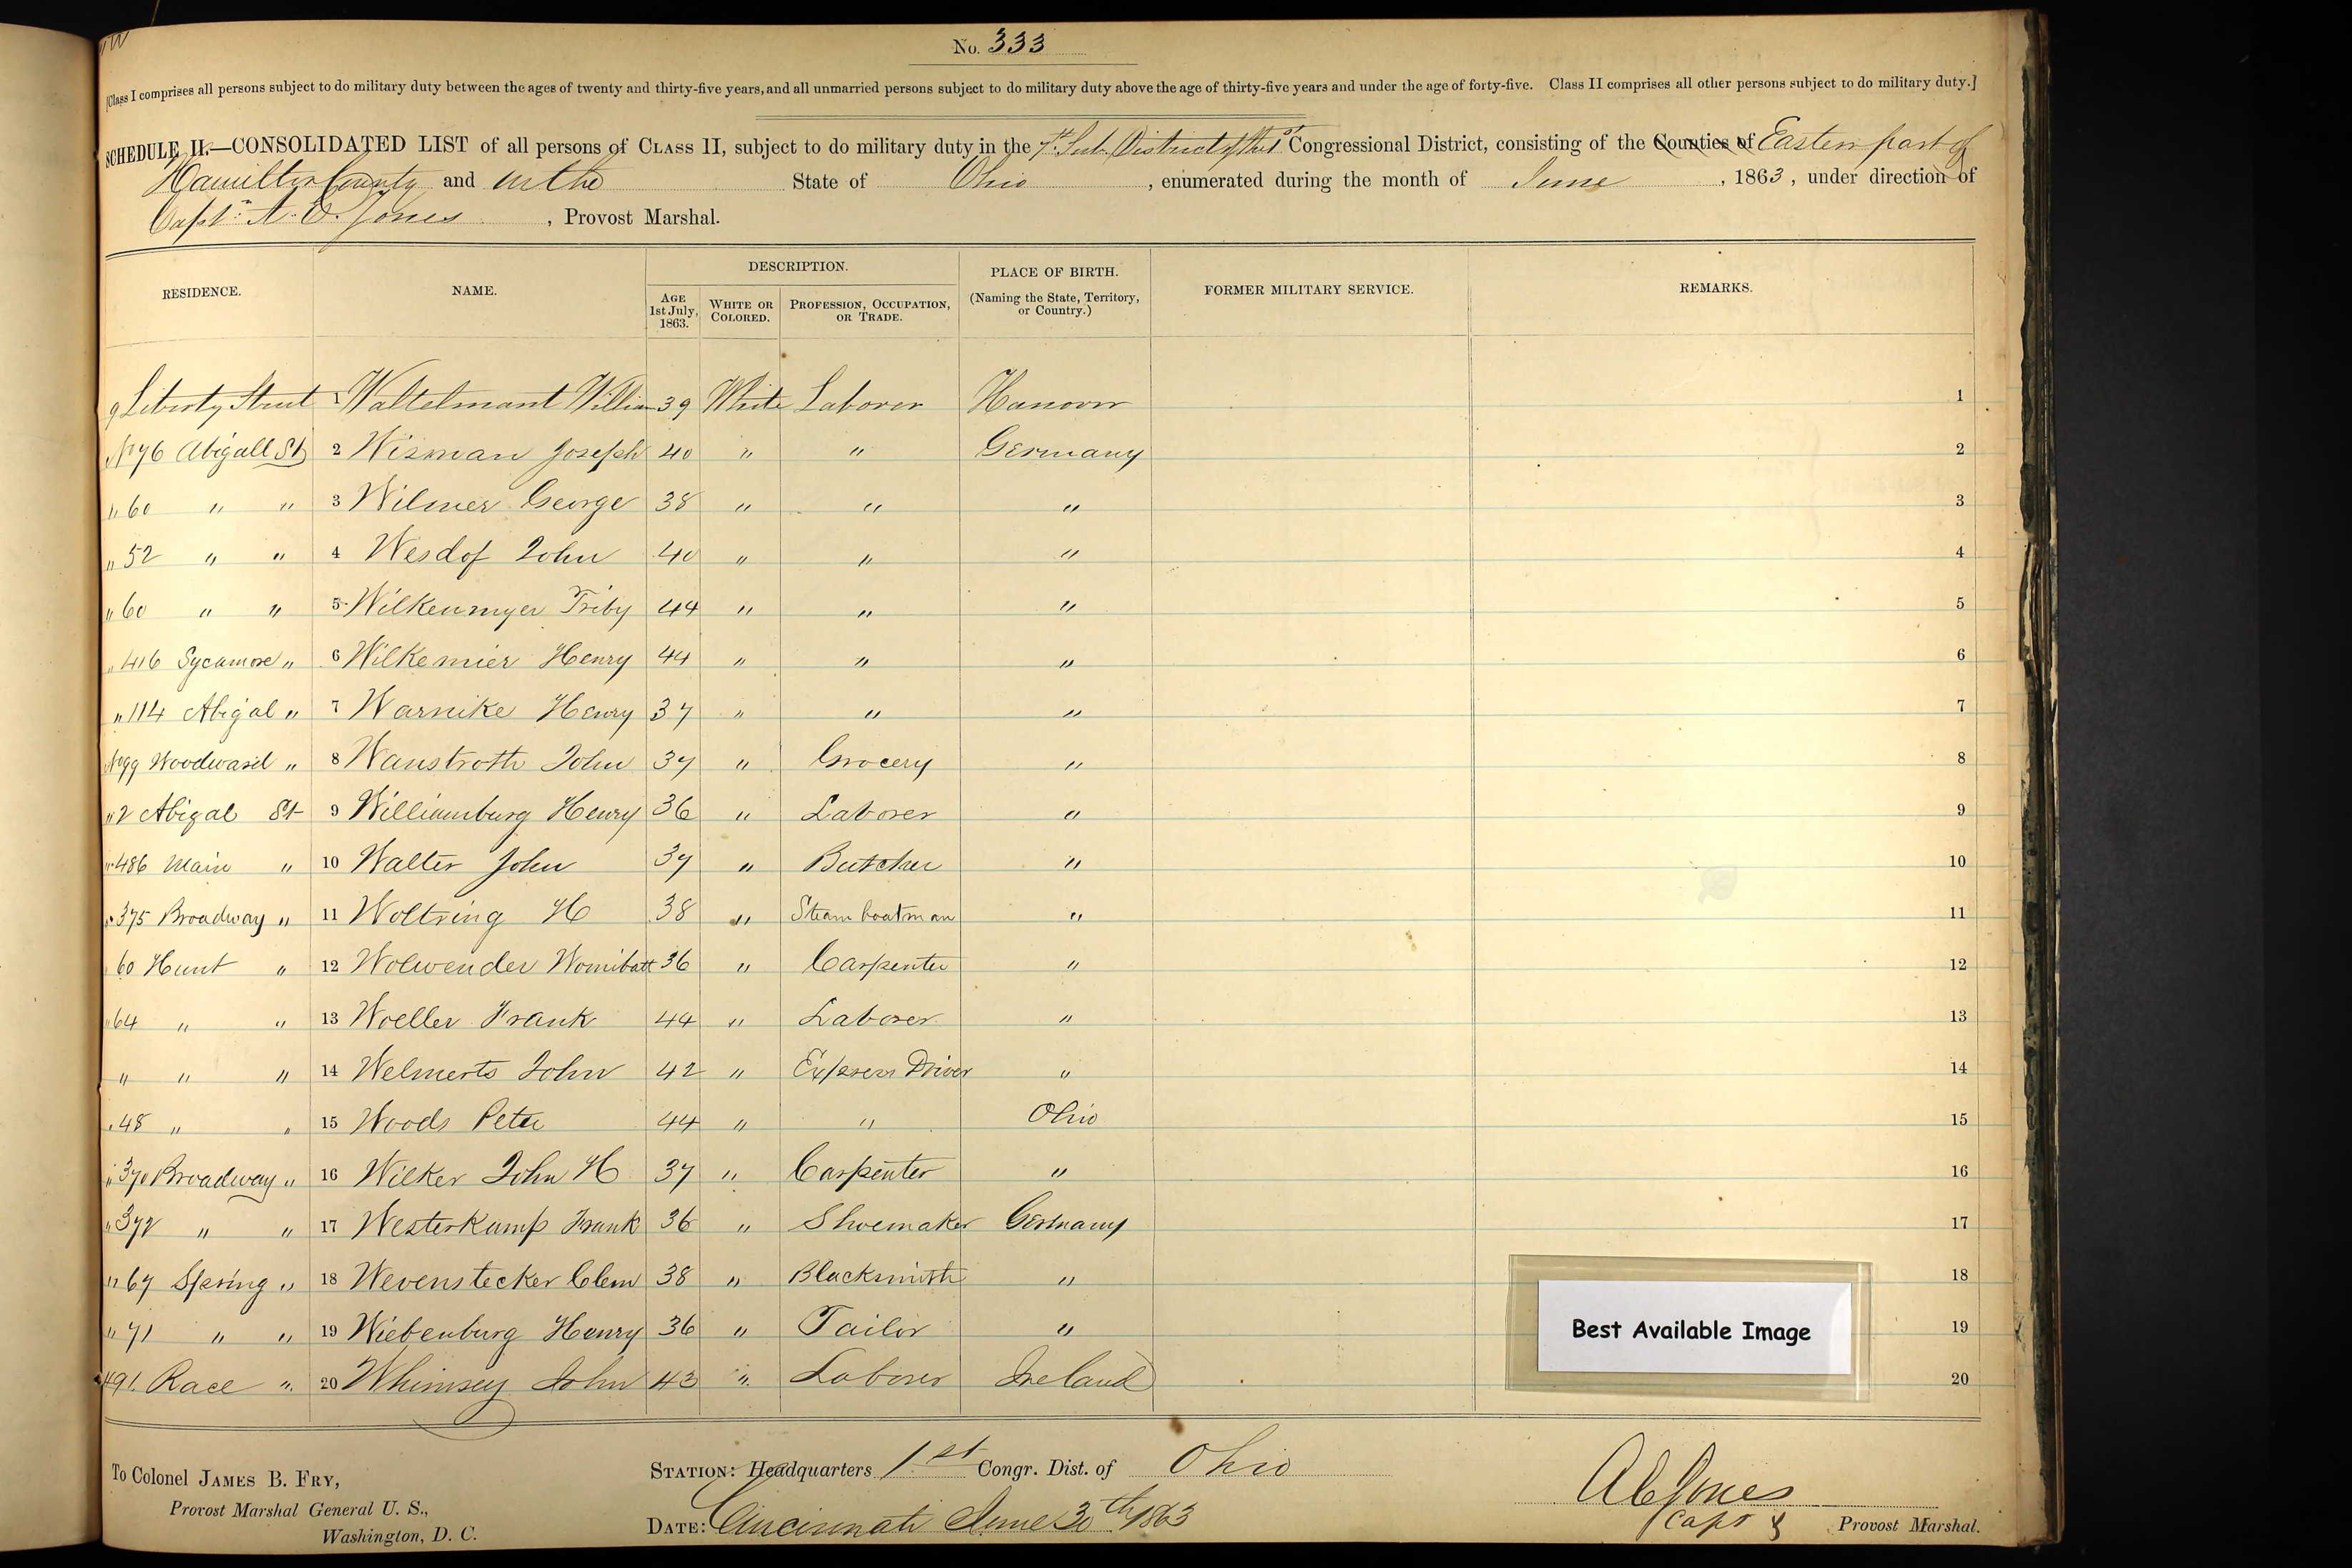 No. 333
[Class I comprises all persons subject to do military duty between the ages of twenty and thirty-five years, and all unmarried persons subject to do military duty above the age of thirty-five years and under the age of forty-five. Class II comprises all other persons subject to do military duty.]
SCHEDULE II.—CONSOLIDATED LIST of all persons of CLASS II, subject to do military duty in the Sub. District of the 1st Congressional District, consisting of the Counties of Eastern part of
Hamilton County and in the State of Ohio, enumerated during the month of June, 1863, under direction of
Capt. A. E. Jones, Provost Marshal.
RESIDENCE. NAME. DESCRIPTION. PLACE OF BIRTH. (Naming the State, Territory, or Country.) FORMER MILITARY SERVICE. REMARKS.
AGE 1st July, 1863. WHITE OR COLORED. PROFESSION, OCCUPATION, OR TRADE.
9 Liberty Street 1 Waltelmant William 39 White Laborer Hanover 1
No 76 Abigall St 2 Wisman Joseph 40 " " Germany 2
" 60 " " 3 Wilmer George 38 " " " 3
" 52 " " 4 Wesdof John 40 " " " 4
" 60 " " 5 Wilkenmyer Friby 44 " " " 5
" 416 Sycamore " 6 Wilkemier Henry 44 " " " 6
" 114 Abigal " 7 Warnike Henry 37 " " " 7
No 99 Woodward " 8 Wanstroth John 37 " Grocery " 8
" 2 Abigal St 9 Williamburg Henry 36 " Laborer " 9
" 486 Main " 10 Walter John 37 " Butcher " 10
" 375 Broadway " 11 Woltring H 38 " Steam boatman " 11
" 60 Hunt " 12 Wolwender Wornibatt 36 " Carpenter " 12
" 64 " " 13 Woeller Frank 44 " Laborer " 13
" " " 14 Welmerts John 42 " Express Driver " 14
" 48 " " 15 Woods Peter 44 " " Ohio 15
" 370 Broadway " 16 Wilker John H 37 " Carpenter " 16
" 372 " " 17 Westerkamp Frank 36 " Shoemaker Germany 17
" 67 Spring " 18 Wevenstecker Clem 38 " Blacksmith " 18
" 71 " " 19 Wiebenburg Henry 36 " Tailor " 19
491 Race " 20 Whimsey John 43 " Laborer Ireland 20
Best Available Image
To Colonel JAMES B. FRY,
Provost Marshal General U. S.,
Washington, D. C.
STATION: Headquarters 1st Congr. Dist. of Ohio
DATE: Cincinnati June 30th 1863
A E Jones
Capt & Provost Marshal.